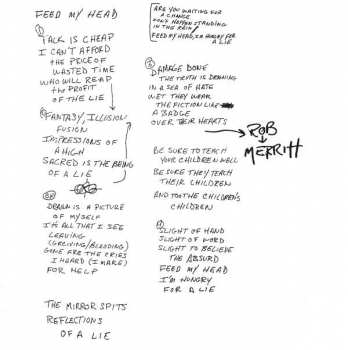 FEED MY HEAD
①
TALK IS CHEAP
I CAN'T AFFORD
THE PRICE OF
WASTED TIME
WHO WILL REAP
THE PROFIT
OF THE LIE
FANTASY, ILLUSION
FUSION
IMPRESSIONS OF
A HIGH
SACRED IS THE BEING
OF A LIE
DRAWN IS A PICTURE
OF MYSELF
I'M ALL THAT I SEE
LEAVING
(GRIEVING/BLEEDING)
GONE ARE THE CRIES
I HEARD (I MAKE)
FOR HELP
THE MIRROR SPITS
REFLECTIONS
OF A LIE
ARE YOU WAITING FOR
A CHANGE
DON'T HAPPEN STANDING
IN THE RAIN
FEED MY HEAD, I'M HUNGRY FOR
A LIE
③
DAMAGE DONE
THE TRUTH IS DROWNING
IN A SEA OF HATE
YET THEY WEAR
THE FICTION LIKE
A BADGE
OVER THEIR HEARTS
ROB
MERRITT
BE SURE TO TEACH
YOUR CHILDREN WELL
BE SURE THEY TEACH
THEIR CHILDREN
AND TOO THE CHILDREN'S
CHILDREN
④
SLIGHT OF HAND
SLIGHT OF WORD
SLIGHT TO BELIEVE
THE ABSURD
FEED MY HEAD
I'M HUNGRY
FOR A LIE